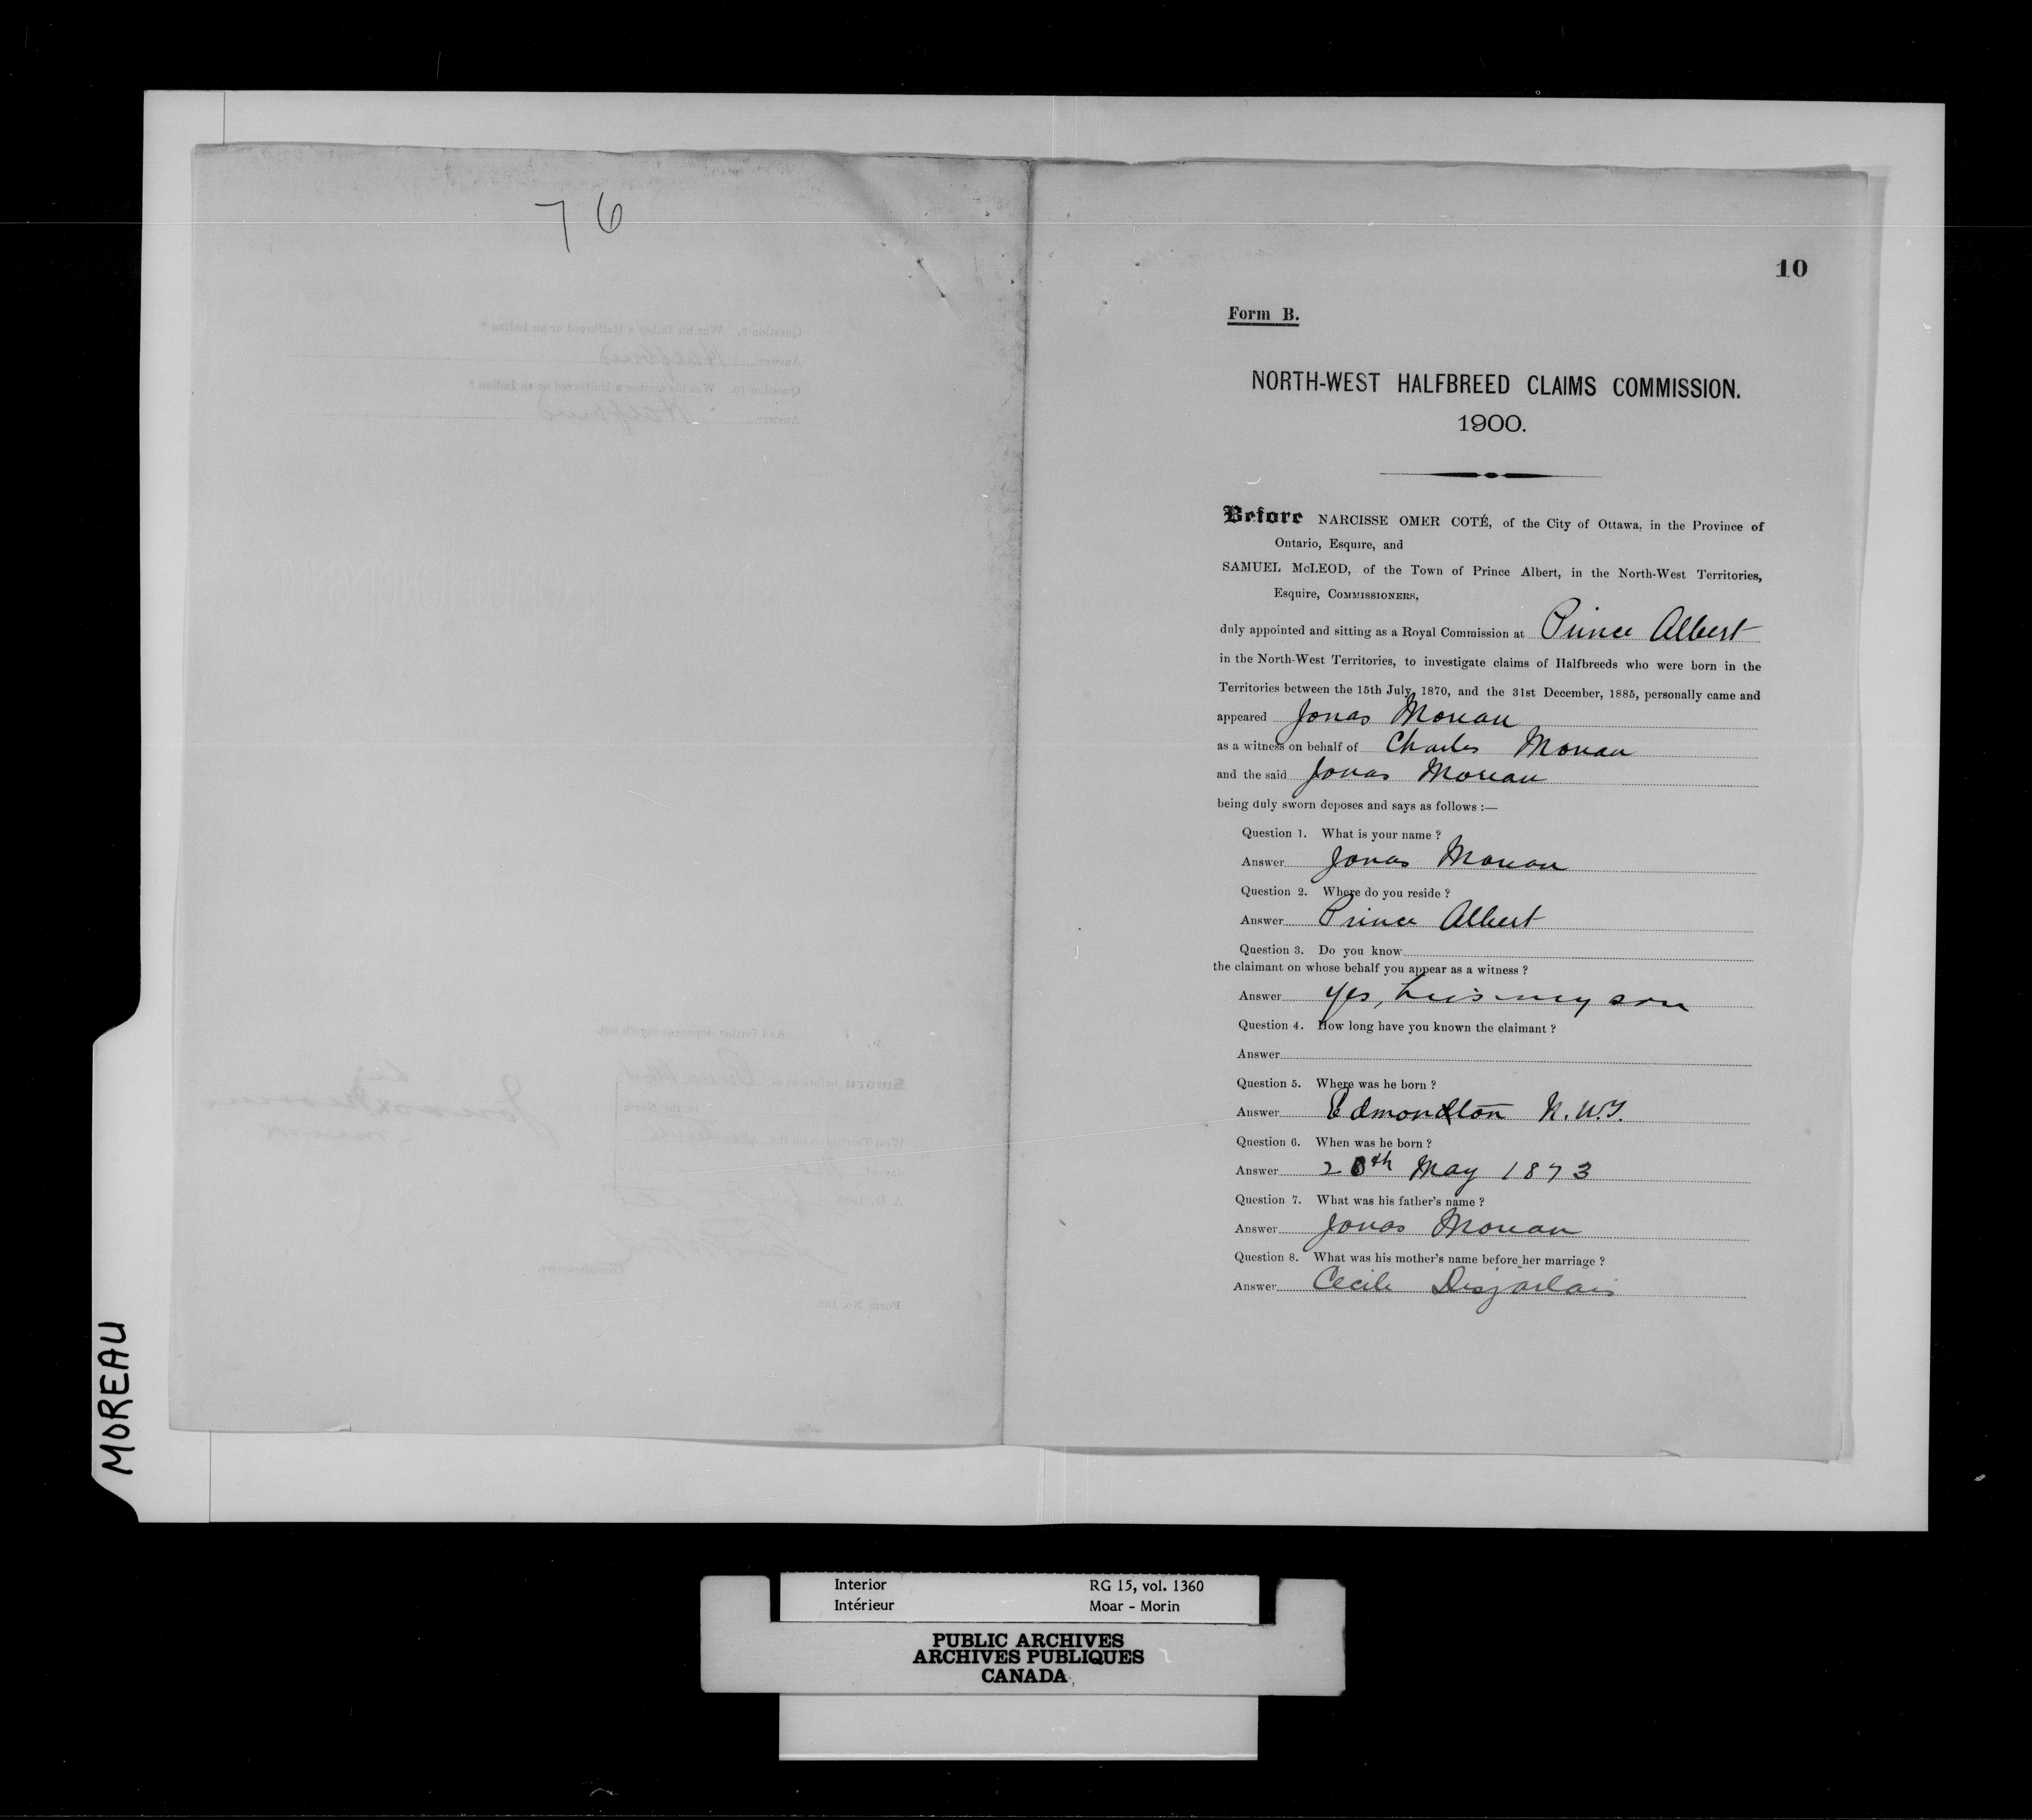 76
10
Form B.
NORTH-WEST HALFBREED CLAIMS COMMISSION.
1900.
Before NARCISSE OMER COTÉ, of the City of Ottawa, in the Province of
Ontario, Esquire, and
SAMUEL McLEOD, of the Town of Prince Albert, in the North-West Territories,
Esquire, COMMISSIONERS,
duly appointed and sitting as a Royal Commission at Prince Albert
in the North-West Territories, to investigate claims of Halfbreeds who were born in the
Territories between the 15th July, 1870, and the 31st December, 1885, personally came and
appeared Jonas Moreau
as a witness on behalf of Charles Moreau
and the said Jonas Moreau
being duly sworn deposes and says as follows :—
Question 1. What is your name ?
Answer Jonas Moreau
Question 2. Where do you reside ?
Answer Prince Albert
Question 3. Do you know
the claimant on whose behalf you appear as a witness ?
Answer Yes, he is my son
Question 4. How long have you known the claimant ?
Answer
Question 5. Where was he born ?
Answer Edmonton N.W.T.
Question 6. When was he born ?
Answer 20th May 1873
Question 7. What was his father's name ?
Answer Jonas Moreau
Question 8. What was his mother's name before her marriage ?
Answer Cecile Desjarlais
MOREAU
Interior RG 15, vol. 1360
Intérieur Moar - Morin
PUBLIC ARCHIVES
ARCHIVES PUBLIQUES
CANADA